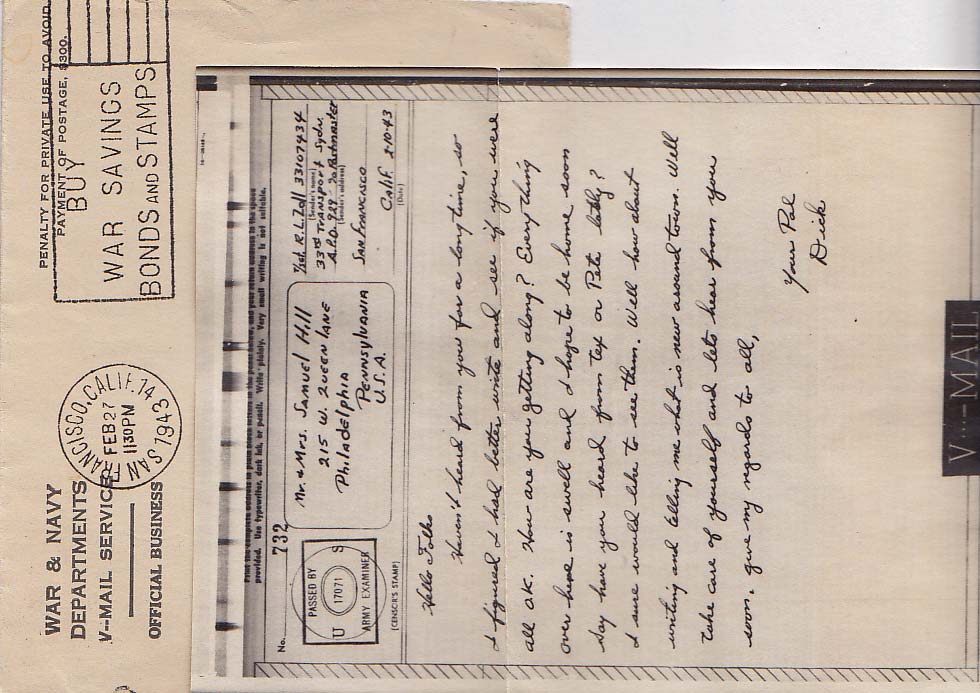 WAR & NAVY
DEPARTMENTS
V--MAIL SERVICE
OFFICIAL BUSINESS
SAN FRANCISCO, CALIF. 14
FEB 27
1130 PM
1943
PENALTY FOR PRIVATE USE TO AVOID
PAYMENT OF POSTAGE, $300.
BUY
WAR SAVINGS
BONDS AND STAMPS
Print the complete address in plain letters in the panel below, and your return address in the space
provided. Use typewriter, dark ink, or pencil. Write plainly. Very small writing is not suitable.
No. 732
PASSED BY
U S
17071
ARMY EXAMINER
(CENSOR'S STAMP)
Mr. & Mrs. Samuel Hill
215 W. Queen Lane
Philadelphia
Pennsylvania
U.S.A.
R. L. Zoll 33107434
(Sender's name)
33rd Transport Sqdn
(Sender's address)
A.P.O. 929 Postmaster
San Francisco
Calif. 2-10-43
(Date)
Hello Folks
Haven't heard from you for a long time, so
I figured I had better write and see if you were
all o.k. How are you getting along? Everything
over here is swell and I hope to be home soon
Say have you heard from Tex or Pete lately?
I sure would like to see them. Well how about
writing and telling me what is new around town. Well
take care of yourself and lets hear from you
soon, give my regards to all,
Your Pal
Dick
V--MAIL